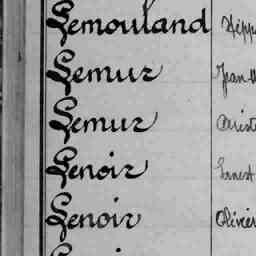 Lemouland Hipp
Lemur Jean
Lemur Arist
Lenoir Ernest
Lenoir Olivier